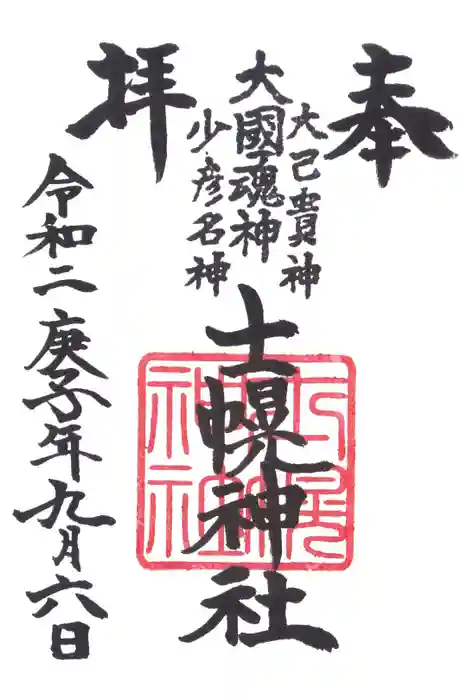 奉
大己貴神
大國魂神
少彦名神
士幌神社
拝
令和二庚子年九月六日